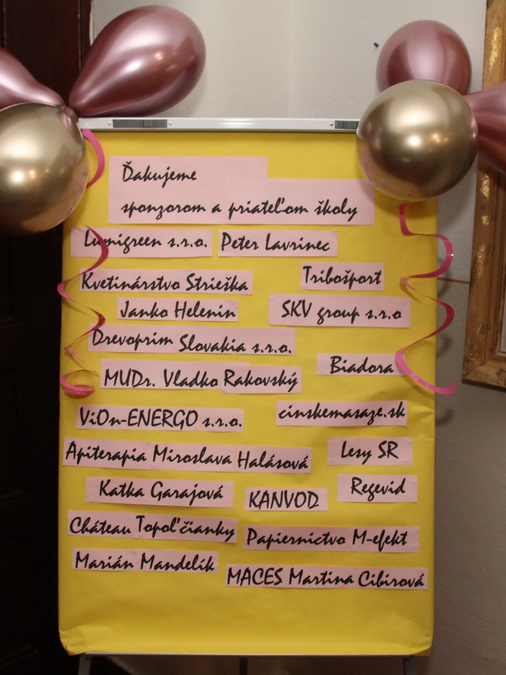 Ďakujeme
sponzorom a priateľom školy
Lumigreen s.r.o. Peter Lavrinec
Kvetinárstvo Strieška Tribošport
Janko Helenin SKV group s.r.o
Drevoprim Slovakia s.r.o.
MUDr. Vladko Rakovský Biadora
ViOn-ENERGO s.r.o. cinskemasaze.sk
Apiterapia Miroslava Halásová Lesy SR
Katka Garajová KANVOD Regevid
Cháteau Topoľčianky Papiernictvo M-efekt
Marián Mandelík MACES Martina Cibirová